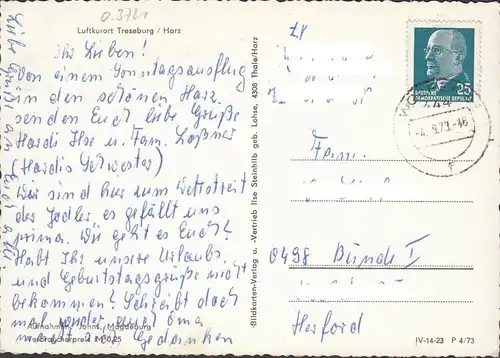 0.3721
Luftkurort Treseburg / Harz
Ihr Lieben!
Von einem Sonntagsausflug
in den schönen Harz
senden Euch liebe Grüße
Hardi Ilse u. Fam. Loßner
(Hardis Schwester)
Wir sind hier zum Wettstreit
der Jodler, es gefällt uns
prima. Wie geht es Euch?
Habt Ihr unsere Urlaubs
und Geburtstagsgrüße nicht
bekommen? Schreibt doch
mal
Oma
Gedanken
Liebe Grüße an
Aufnahmen: Johns, Magdeburg
Verbraucherpreis M 0,25
Bildkarten-Verlag u. -Vertrieb Ilse Steinhilb geb. Lohse, 4308 Thale/Harz
25
DEUTSCHE
DEMOKRATISCHE REPUBLIK
-4.9.73.-16
Fam.
0498 Bünde 1
Herford
IV-14-23 P 4/73